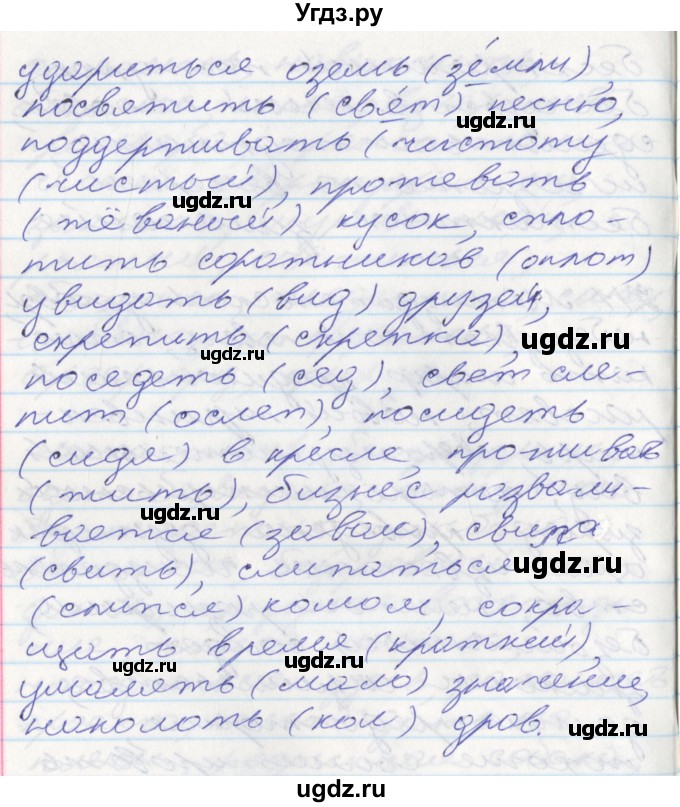 Угдз.ру
удариться оземь (зе́мли),
посвятить (све́т) песню,
поддерживать (чистоту
(чистый), прожевать
(жёваный) кусок, спло-
тить соратников (оплот)
увидать (вид) друзей,
скрепить (скрепка),
поседеть (сед), свет сле-
пит (ослеп), посидеть
(сидя) в кресле, проживать
(жить), бизнес развали-
вается (завал), свила
(свить), слипаться
(слипся) комом, сокра-
щать время (краткий),
умалять (мало) значение,
наколоть (кол) дров.
ugdz.ru
ugdz.ru
ugdz.ru
ugdz.ru
ugdz.ru
ugdz.ru
ugdz.ru
ugdz.ru
ugdz.ru
ugdz.ru
ugdz.ru
ugdz.ru
ugdz.ru